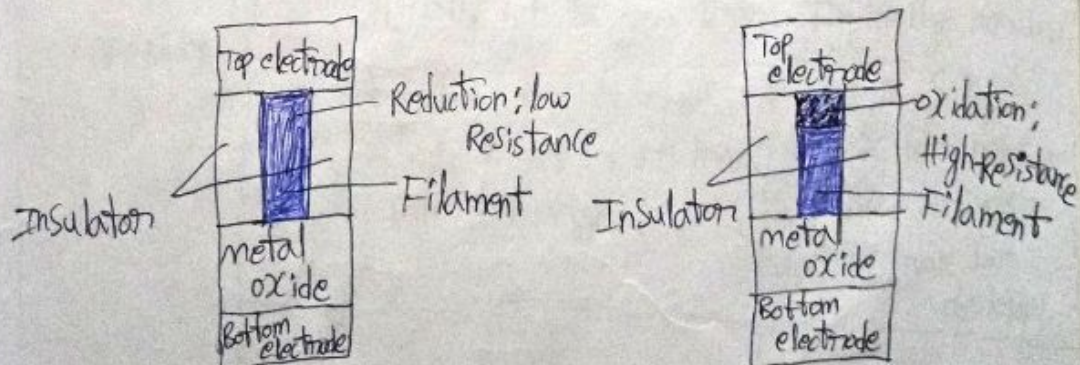 Top electrode
Reduction: low
Resistance
Filament
Insulator
metal
oxide
Bottom
electrode
Top
electrode
oxidation:
High-Resistance
Filament
Insulator
metal
oxide
Bottom
electrode